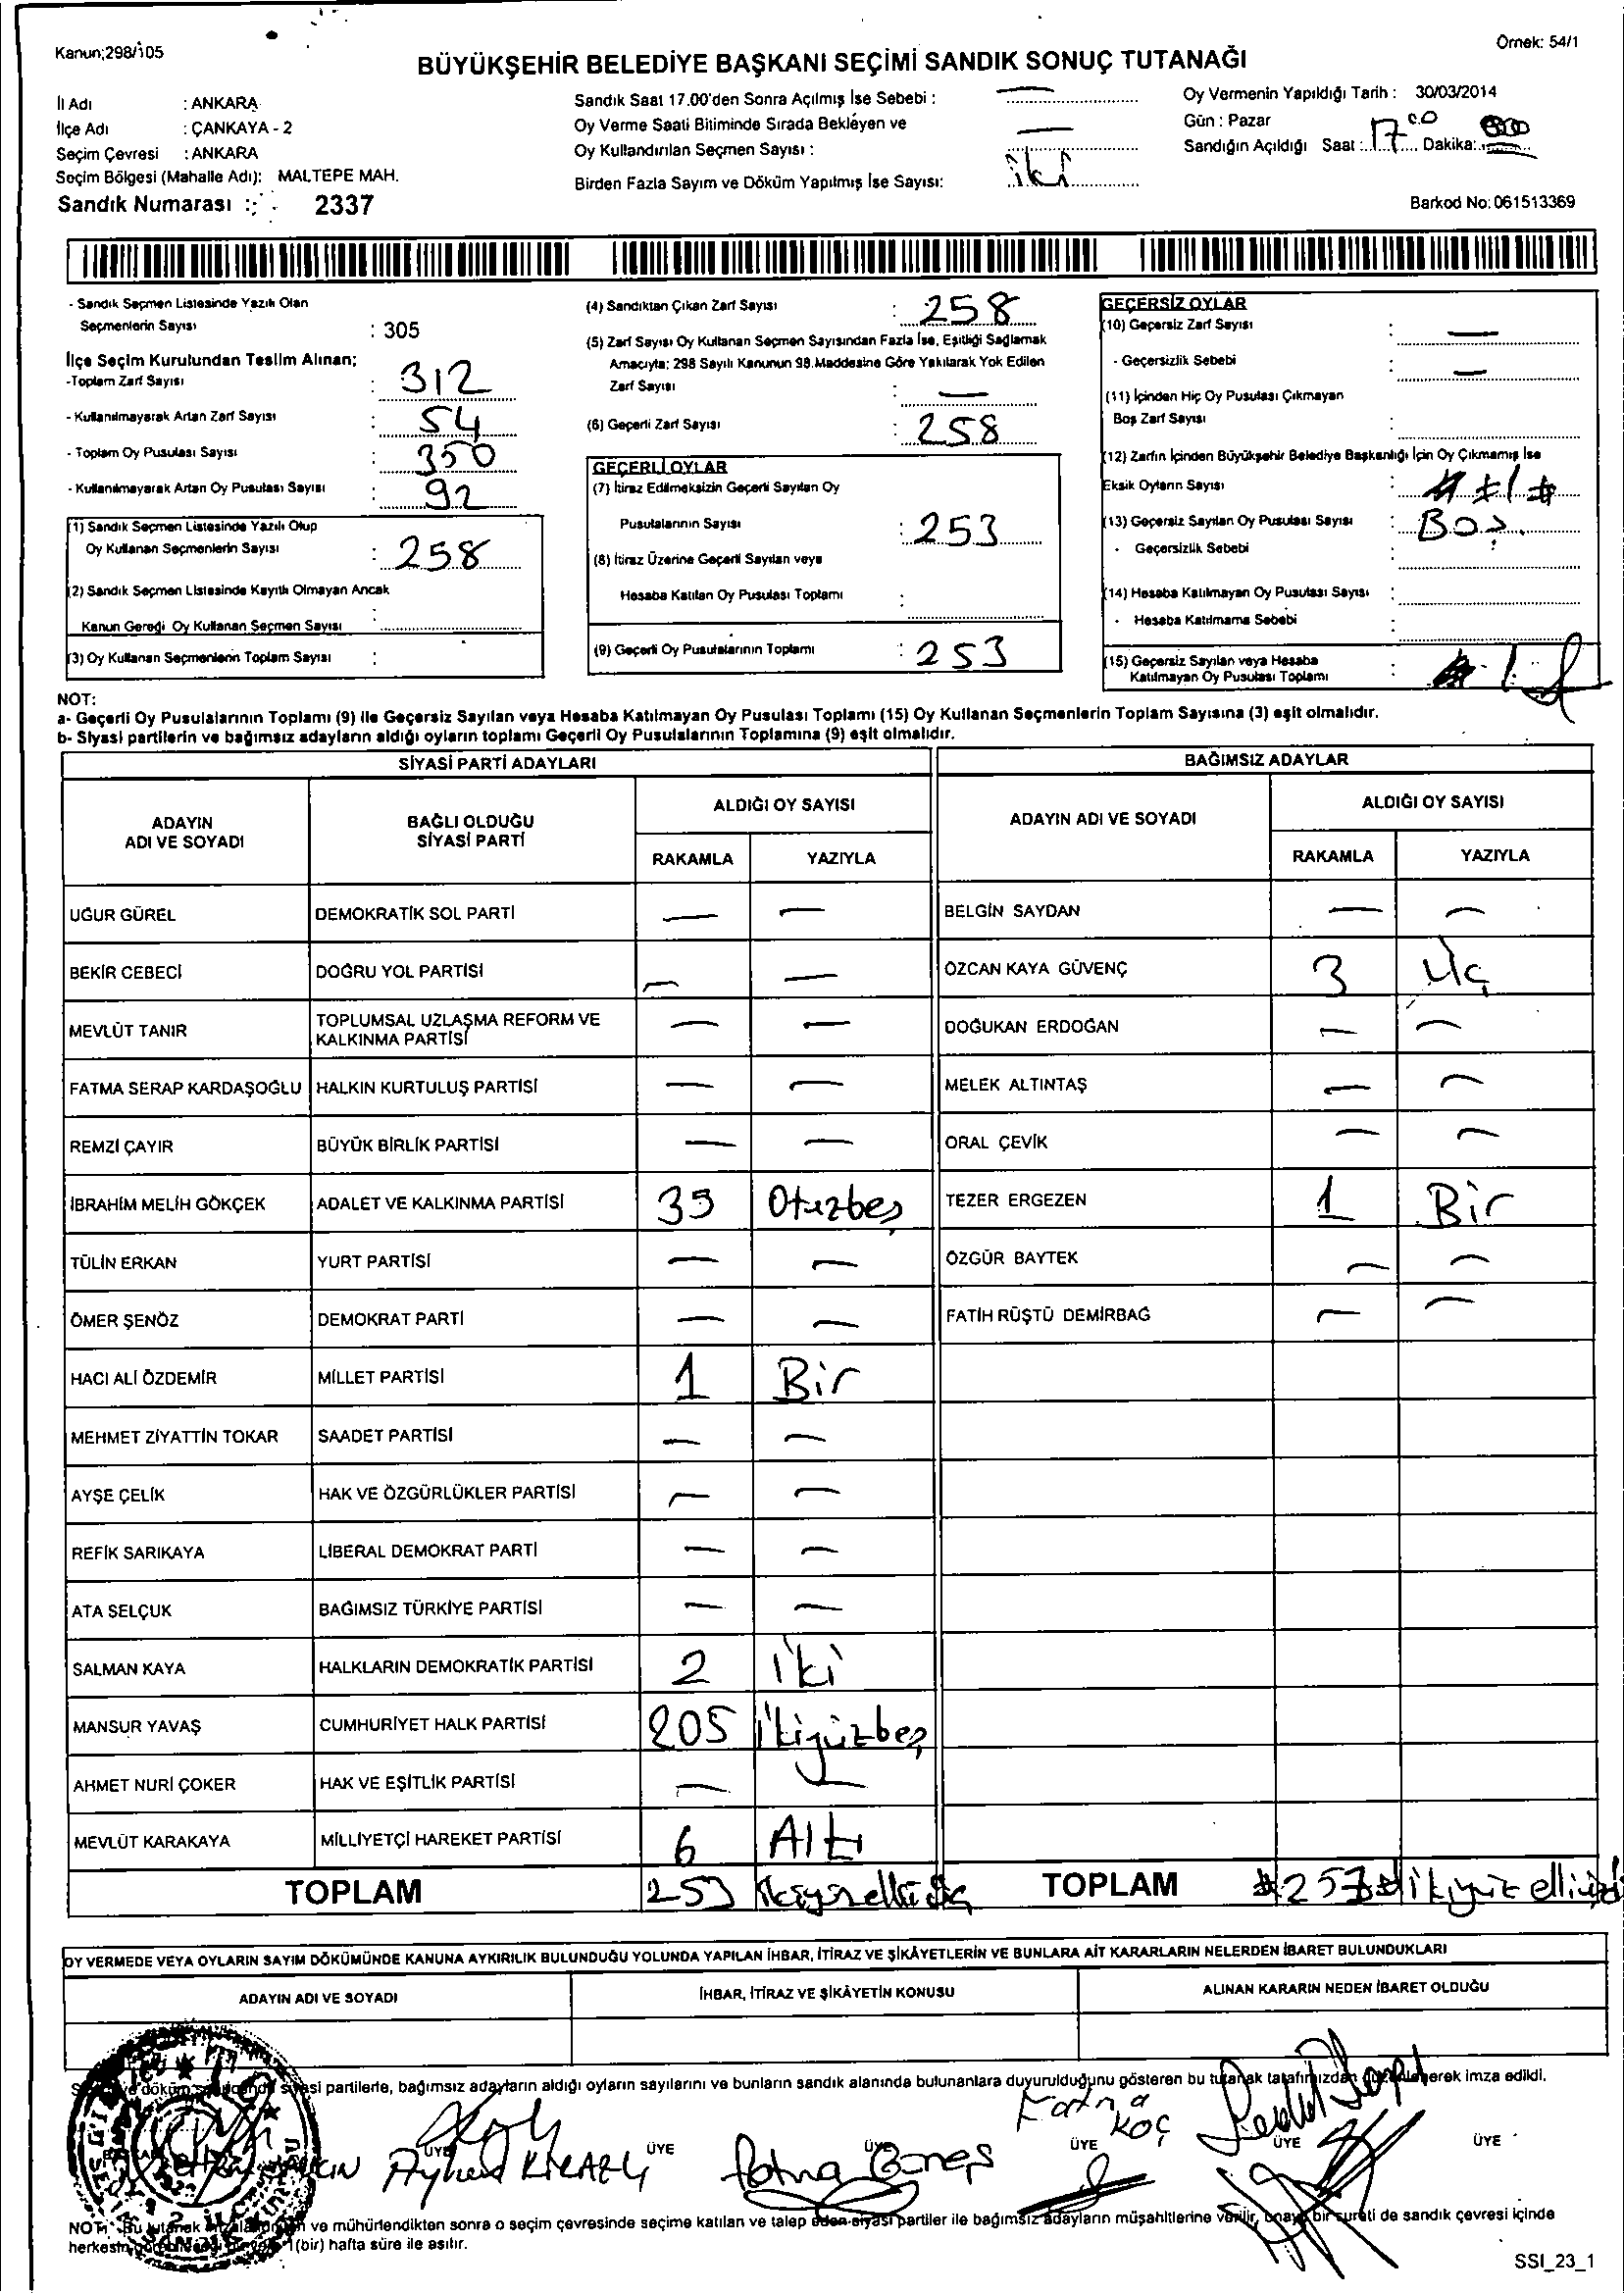 Kanun;298/105
Örnek: 54/1
BÜYÜKŞEHİR BELEDİYE BAŞKANI SEÇİMİ SANDIK SONUÇ TUTANAĞI
İl Adı : ANKARA
İlçe Adı : ÇANKAYA - 2
Seçim Çevresi : ANKARA
Seçim Bölgesi (Mahalle Adı): MALTEPE MAH.
Sandık Numarası : 2337
Sandık Saat 17.00'den Sonra Açılmış İse Sebebi : —
Oy Verme Saati Bitiminde Sırada Bekleyen ve
Oy Kullandırılan Seçmen Sayısı : —
Birden Fazla Sayım ve Döküm Yapılmış İse Sayısı: iki
Oy Vermenin Yapıldığı Tarih : 30/03/2014
Gün : Pazar
Sandığın Açıldığı Saat : 17 00 Dakika:
Barkod No: 061513369
- Sandık Seçmen Listesinde Yazılı Olan
Seçmenlerin Sayısı : 305
İlçe Seçim Kurulundan Teslim Alınan;
-Toplam Zarf Sayısı : 312
- Kullanılmayarak Artan Zarf Sayısı : 54
- Toplam Oy Pusulası Sayısı : 350
- Kullanılmayarak Artan Oy Pusulası Sayısı : 92
(1) Sandık Seçmen Listesinde Yazılı Olup
Oy Kullanan Seçmenlerin Sayısı : 258
(2) Sandık Seçmen Listesinde Kayıtlı Olmayan Ancak
Kanun Gereği Oy Kullanan Seçmen Sayısı :
(3) Oy Kullanan Seçmenlerin Toplam Sayısı :
(4) Sandıktan Çıkan Zarf Sayısı : 258
(5) Zarf Sayısı Oy Kullanan Seçmen Sayısından Fazla İse, Eşitliği Sağlamak
Amacıyla; 298 Sayılı Kanunun 98.Maddesine Göre Yakılarak Yok Edilen
Zarf Sayısı : —
(6) Geçerli Zarf Sayısı : 258
GEÇERLİ OYLAR
(7) İtiraz Edilmeksizin Geçerli Sayılan Oy
Pusulalarının Sayısı : 253
(8) İtiraz Üzerine Geçerli Sayılan veya
Hesaba Katılan Oy Pusulası Toplamı :
(9) Geçerli Oy Pusulalarının Toplamı : 253
GEÇERSİZ OYLAR
(10) Geçersiz Zarf Sayısı : —
- Geçersizlik Sebebi : —
(11) İçinden Hiç Oy Pusulası Çıkmayan
Boş Zarf Sayısı :
(12) Zarfın İçinden Büyükşehir Belediye Başkanlığı İçin Oy Çıkmamış İse
Eksik Oyların Sayısı :
(13) Geçersiz Sayılan Oy Pusulası Sayısı : Boş.
- Geçersizlik Sebebi :
(14) Hesaba Katılmayan Oy Pusulası Sayısı :
- Hesaba Katılmama Sebebi :
(15) Geçersiz Sayılan veya Hesaba
Katılmayan Oy Pusulası Toplamı :
NOT:
a- Geçerli Oy Pusulalarının Toplamı (9) ile Geçersiz Sayılan veya Hesaba Katılmayan Oy Pusulası Toplamı (15) Oy Kullanan Seçmenlerin Toplam Sayısına (3) eşit olmalıdır.
b- Siyasi partilerin ve bağımsız adayların aldığı oyların toplamı Geçerli Oy Pusulalarının Toplamına (9) eşit olmalıdır.
SİYASİ PARTİ ADAYLARI BAĞIMSIZ ADAYLAR
ADAYIN ADI VE SOYADI BAĞLI OLDUĞU SİYASİ PARTİ ALDIĞI OY SAYISI ADAYIN ADI VE SOYADI ALDIĞI OY SAYISI
RAKAMLA YAZIYLA RAKAMLA YAZIYLA
UĞUR GÜREL DEMOKRATİK SOL PARTİ — — BELGİN SAYDAN — —
BEKİR CEBECİ DOĞRU YOL PARTİSİ — — ÖZCAN KAYA GÜVENÇ 3 Üç
MEVLÜT TANIR TOPLUMSAL UZLAŞMA REFORM VE KALKINMA PARTİSİ — — DOĞUKAN ERDOĞAN — —
FATMA SERAP KARDAŞOĞLU HALKIN KURTULUŞ PARTİSİ — — MELEK ALTINTAŞ — —
REMZİ ÇAYIR BÜYÜK BİRLİK PARTİSİ — — ORAL ÇEVİK — —
İBRAHİM MELİH GÖKÇEK ADALET VE KALKINMA PARTİSİ 35 Otuzbeş TEZER ERGEZEN 1 Bir
TÜLİN ERKAN YURT PARTİSİ — — ÖZGÜR BAYTEK — —
ÖMER ŞENÖZ DEMOKRAT PARTİ — — FATİH RÜŞTÜ DEMİRBAĞ — —
HACI ALİ ÖZDEMİR MİLLET PARTİSİ 1 Bir
MEHMET ZİYATTİN TOKAR SAADET PARTİSİ — —
AYŞE ÇELİK HAK VE ÖZGÜRLÜKLER PARTİSİ — —
REFİK SARIKAYA LİBERAL DEMOKRAT PARTİ — —
ATA SELÇUK BAĞIMSIZ TÜRKİYE PARTİSİ — —
SALMAN KAYA HALKLARIN DEMOKRATİK PARTİSİ 2 İki
MANSUR YAVAŞ CUMHURİYET HALK PARTİSİ 205 İkiyüzbeş
AHMET NURİ ÇOKER HAK VE EŞİTLİK PARTİSİ — —
MEVLÜT KARAKAYA MİLLİYETÇİ HAREKET PARTİSİ 6 Altı
TOPLAM 253 TOPLAM
OY VERMEDE VEYA OYLARIN SAYIM DÖKÜMÜNDE KANUNA AYKIRILIK BULUNDUĞU YOLUNDA YAPILAN İHBAR, İTİRAZ VE ŞİKÂYETLERİN VE BUNLARA AİT KARARLARIN NELERDEN İBARET BULUNDUKLARI
ADAYIN ADI VE SOYADI İHBAR, İTİRAZ VE ŞİKÂYETİN KONUSU ALINAN KARARIN NEDEN İBARET OLDUĞU
siyasi partilerle, bağımsız adayların aldığı oyların sayılarını ve bunların sandık alanında bulunanlara duyurulduğunu gösteren bu tutanak tarafımızdan düzenlenerek imza edildi.
Fatma KOÇ
ÜYE ÜYE ÜYE ÜYE ÜYE ÜYE
Fatma Güneş
NOT: Bu tutanak ve mühürlendikten sonra o seçim çevresinde seçime katılan ve talep eden siyasi partiler ile bağımsız adayların müşahitlerine verilir, onaylı bir sureti de sandık çevresi içinde
1(bir) hafta süre ile asılır.
SSI_23_1